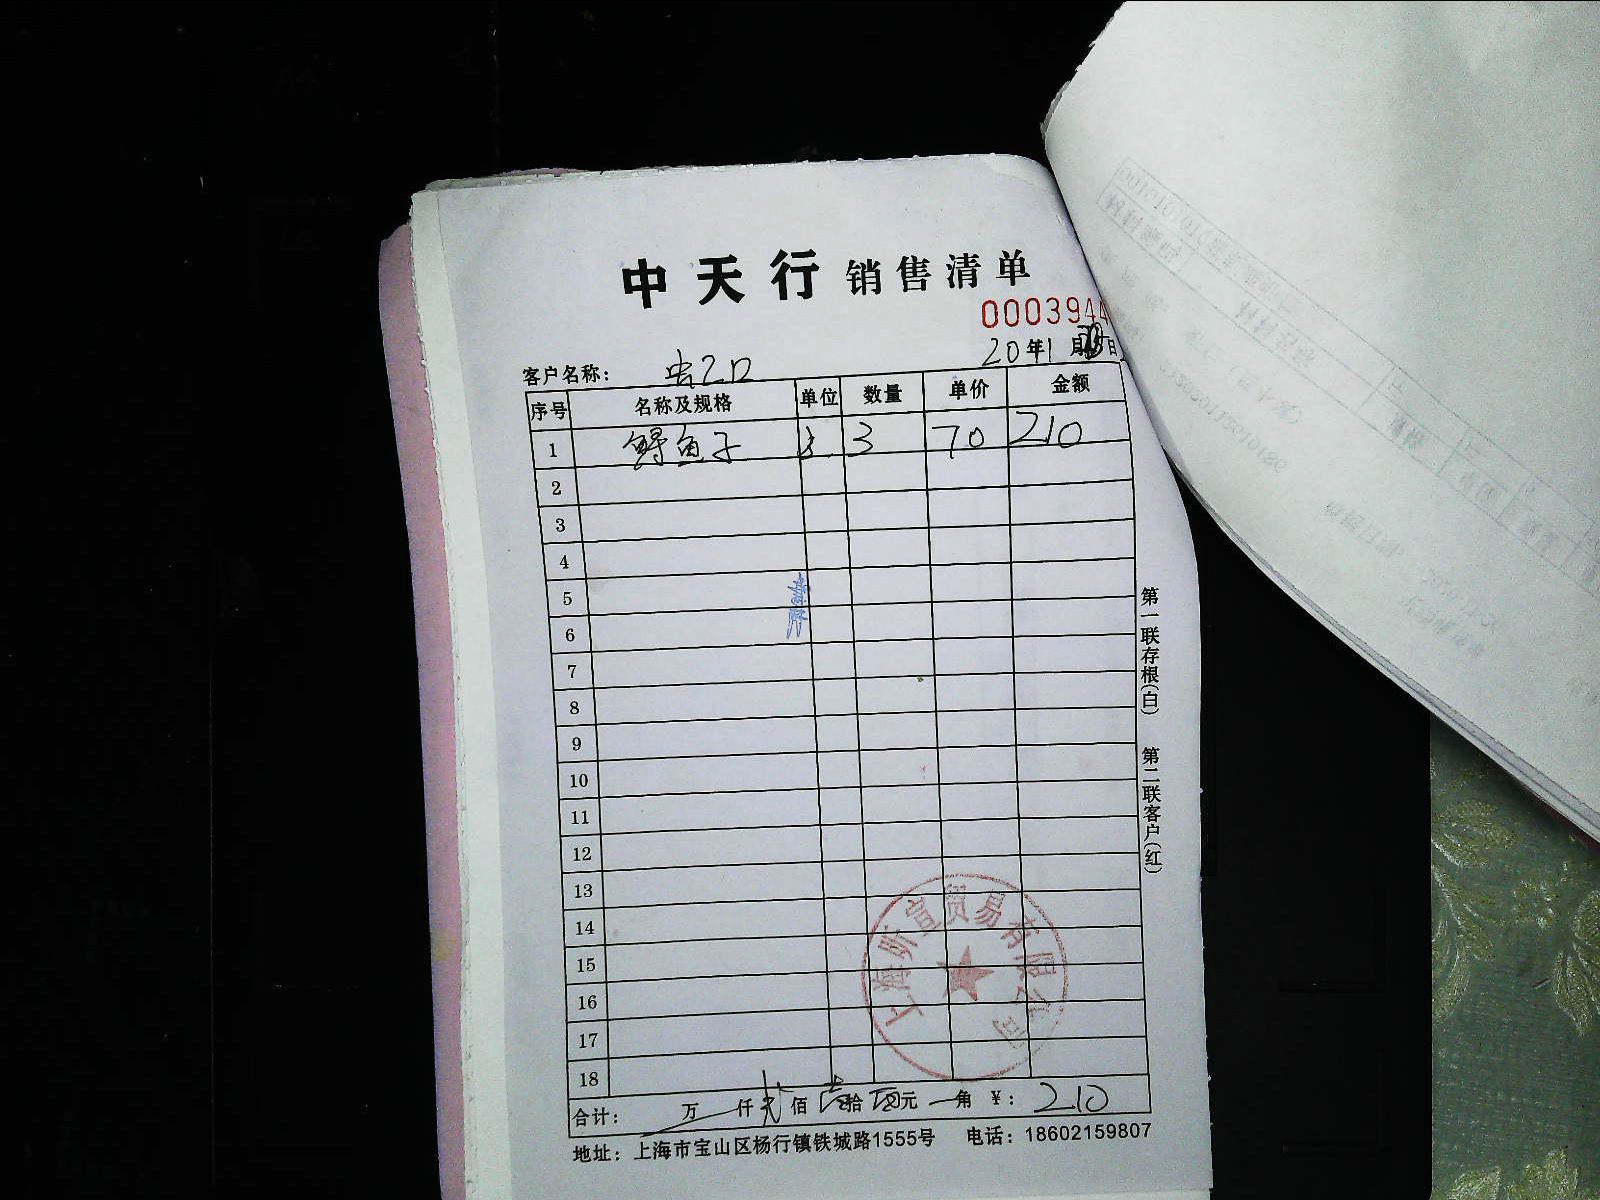 中天行 销售清单
0003944
20 年 1 月 日
客户名称：
序号 名称及规格 单位 数量 单价 金额
1 鲟鱼子 3 70 210
2
3
4
5
6
7
8
9
10
11
12
13
14
15
16
17
18
合计： 万 仟 贰 佰 拾 元 角 ¥： 210
地址：上海市宝山区杨行镇铁城路1555号 电话：18602159807
第一联存根(白) 第二联客户(红)
上海昕宣贸易有限公司